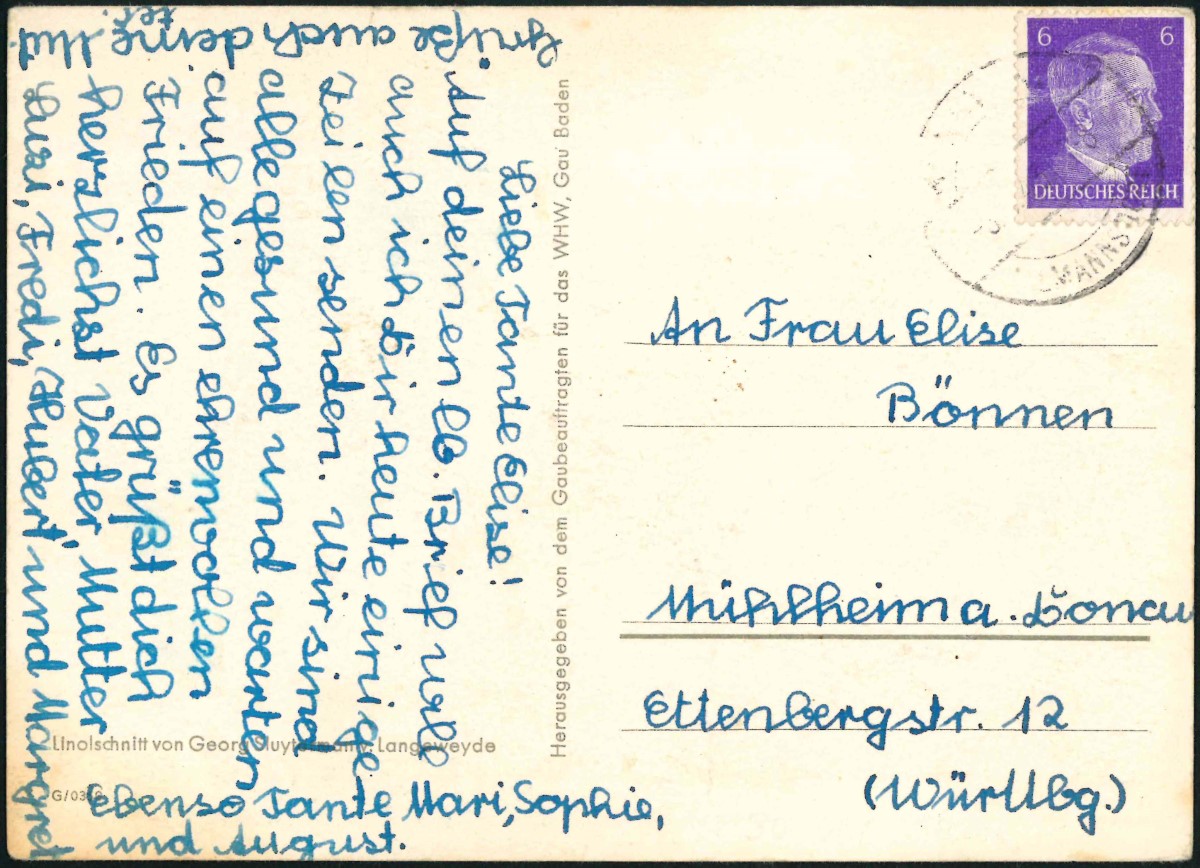 Liebe Tante Elise!
Auf deinen lb. Brief will
auch ich dir heute einige
Zeilen senden. Wir sind
alle gesund und warten
auf einen ehrenvollen
Frieden. Es grüßt dich
herzlichst Vater, Mutter
Luzi, Fredi, Hubert, und Margret
ebenso Tante Mari, Sophie,
und August.
Grüße auch deine Mut
ter.
Herausgegeben von dem Gaubeauftragten für das WHW, Gau Baden
Linolschnitt von Georg Langeweyde
G/03
6 6
DEUTSCHES REICH
An Frau Elise
Bönnen
Mühlheim a. Donau
Ettenbergstr. 12
(Württbg.)